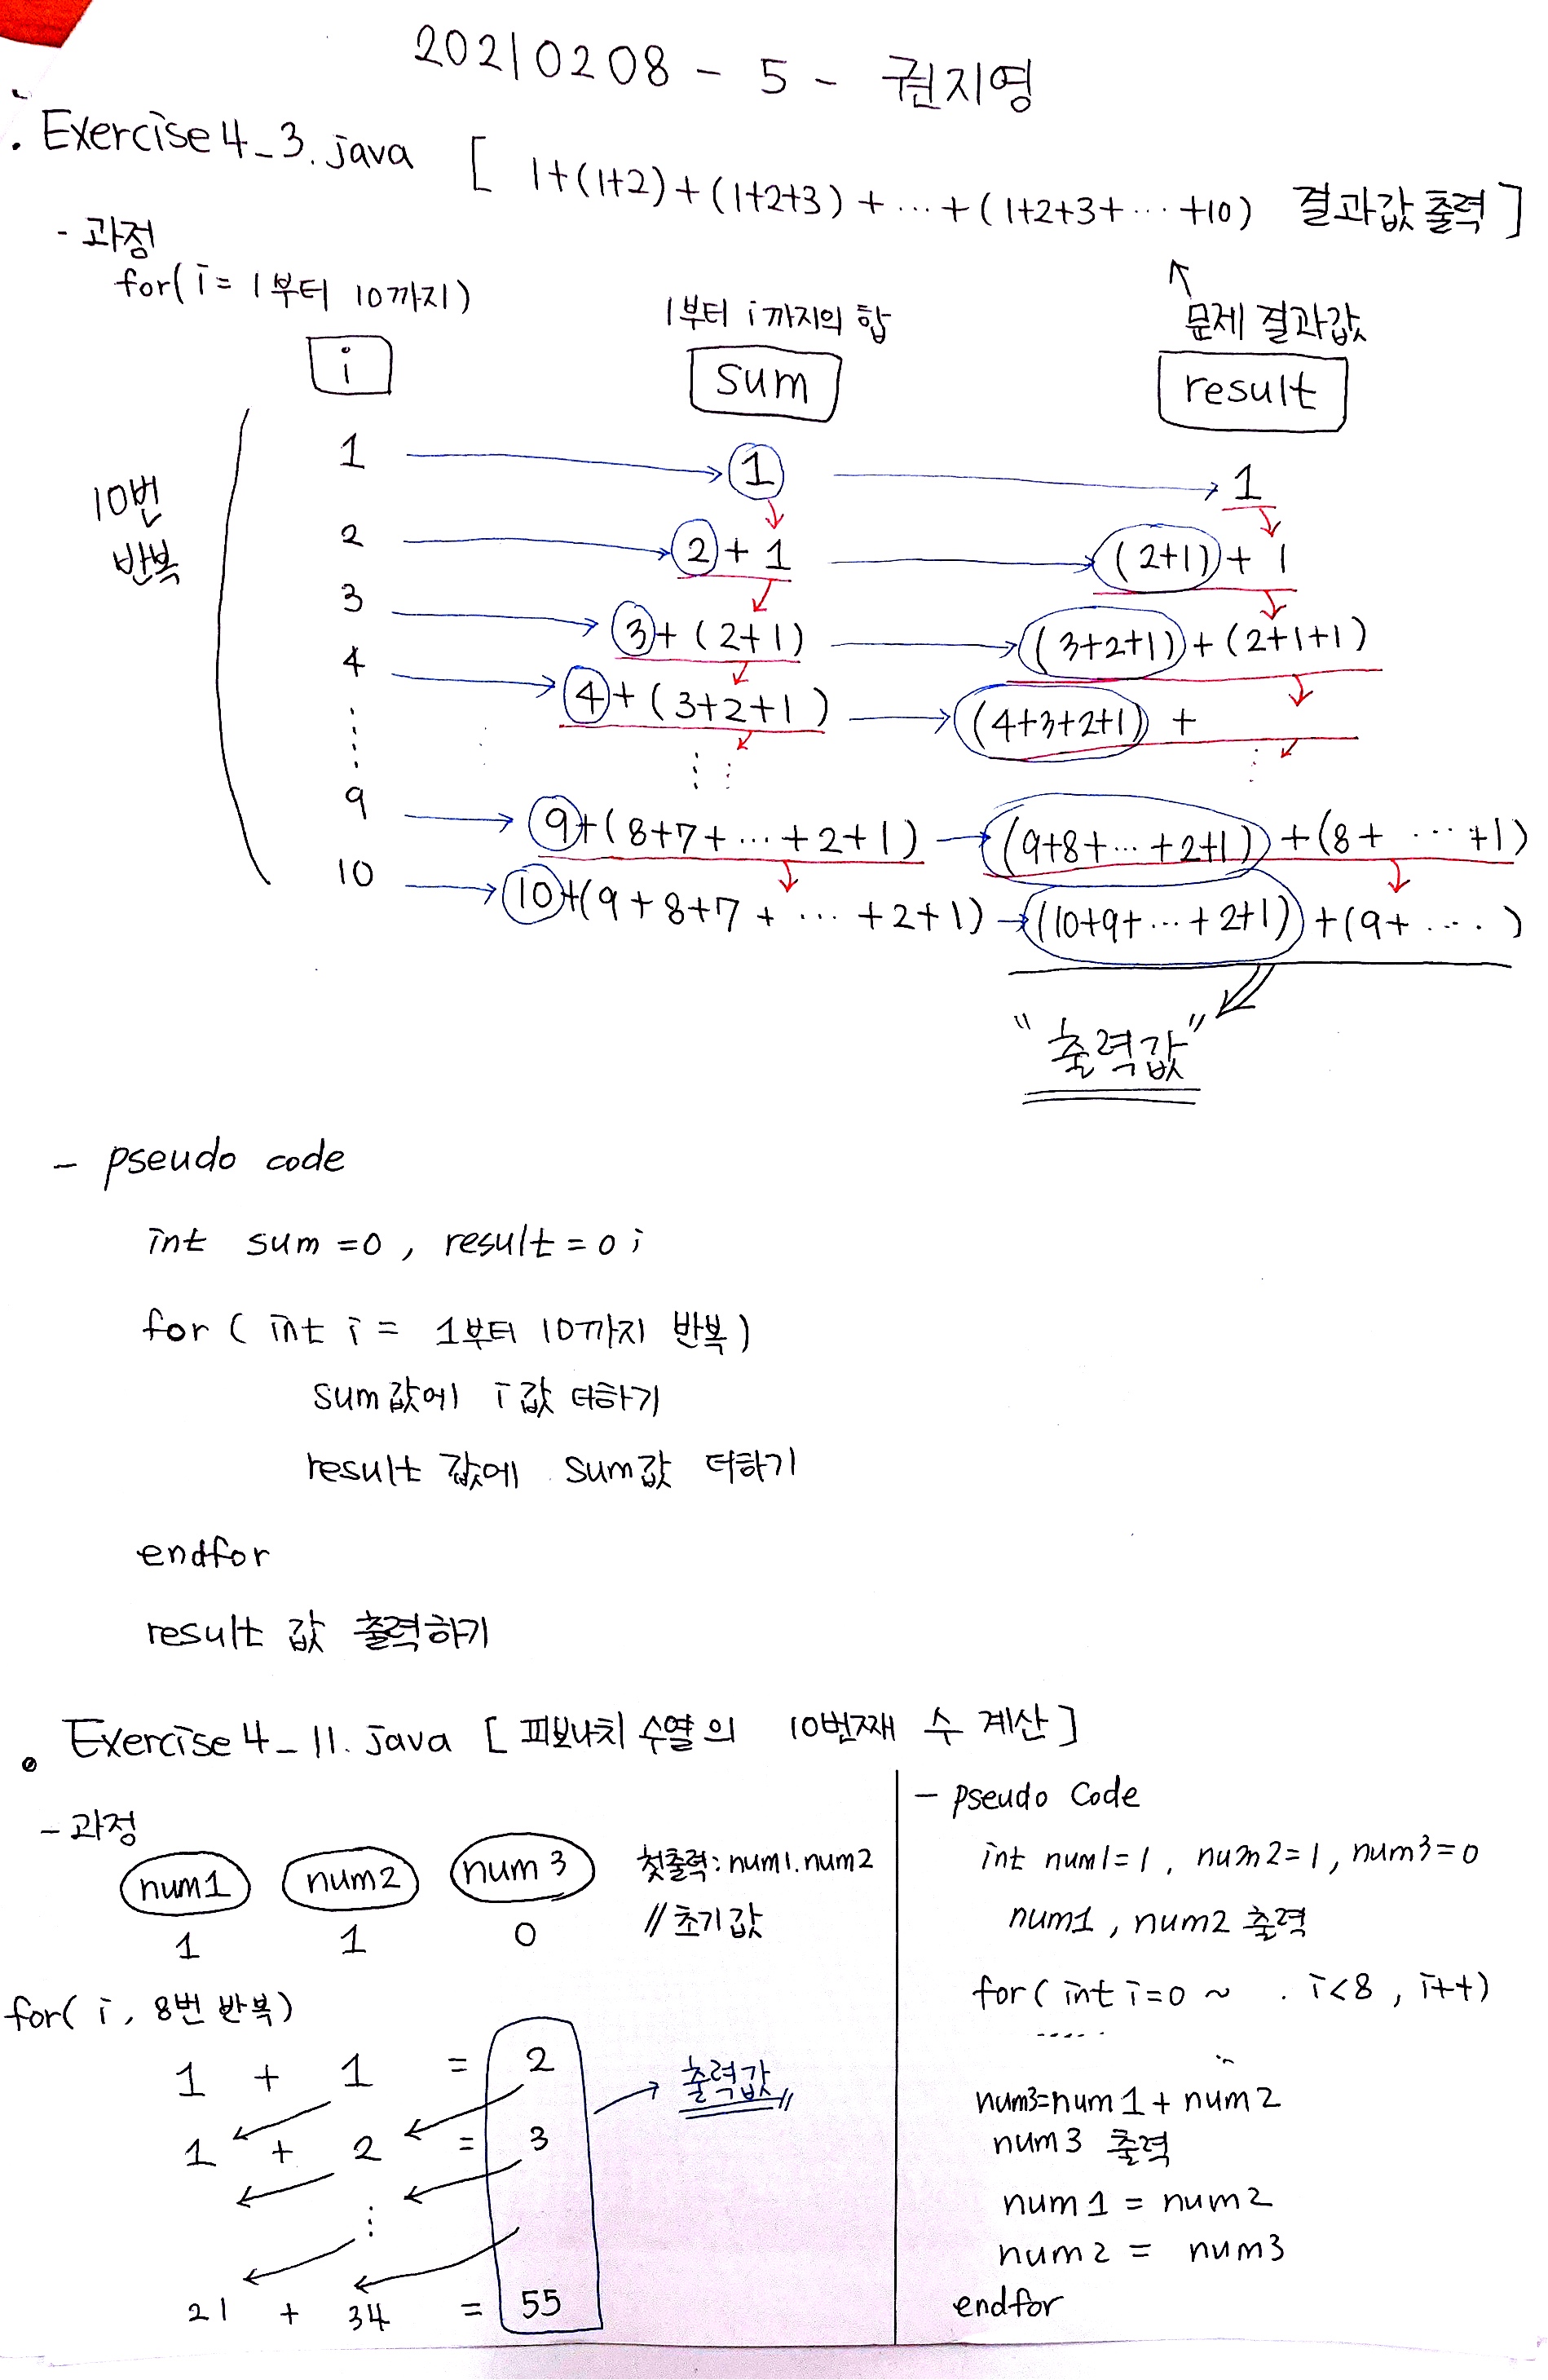 20210208 - 5 - 권지영
. Exercise4_3.java [ 1+(1+2)+(1+2+3)+ ... +(1+2+3+ ... +10) 결과값 출력 ]
- 과정
for(i= 1부터 10까지)
1부터 i까지의 합
↖ 문제 결과값
i sum result
10번 반복
1 → 1 → 1
2 → 2 + 1 → (2+1) + 1
3 → 3+ (2+1) → (3+2+1) + (2+1+1)
4 → 4 + (3+2+1) → (4+3+2+1) +
⋮ ⋮ ⋮
9 → 9+(8+7+ ... +2+1) → (9+8+ ... +2+1) +(8+ ... +1)
10 → 10+(9+8+7+ ... +2+1) → (10+9+ ... +2+1) +(9+ .... )
"출력값"
- pseudo code
int sum =0 , result = 0 ;
for ( int i = 1부터 10까지 반복)
sum값에 i값 더하기
result 값에 sum값 더하기
endfor
result 값 출력하기
. Exercise4_11.java [ 피보나치 수열의 10번째 수 계산 ]
- 과정
num1 num2 num3 첫출력: num1.num2
1 1 0 // 초기값
for( i, 8번 반복)
1 + 1 = 2 → 출력값
1 + 2 = 3
⋮
21 + 34 = 55
- pseudo code
int num1=1, num2=1, num3=0
num1, num2 출력
for( int i=0 ~ . i<8 , i++)
.....
num3=num1 + num2
num3 출력
num1 = num2
num2 = num3
endfor